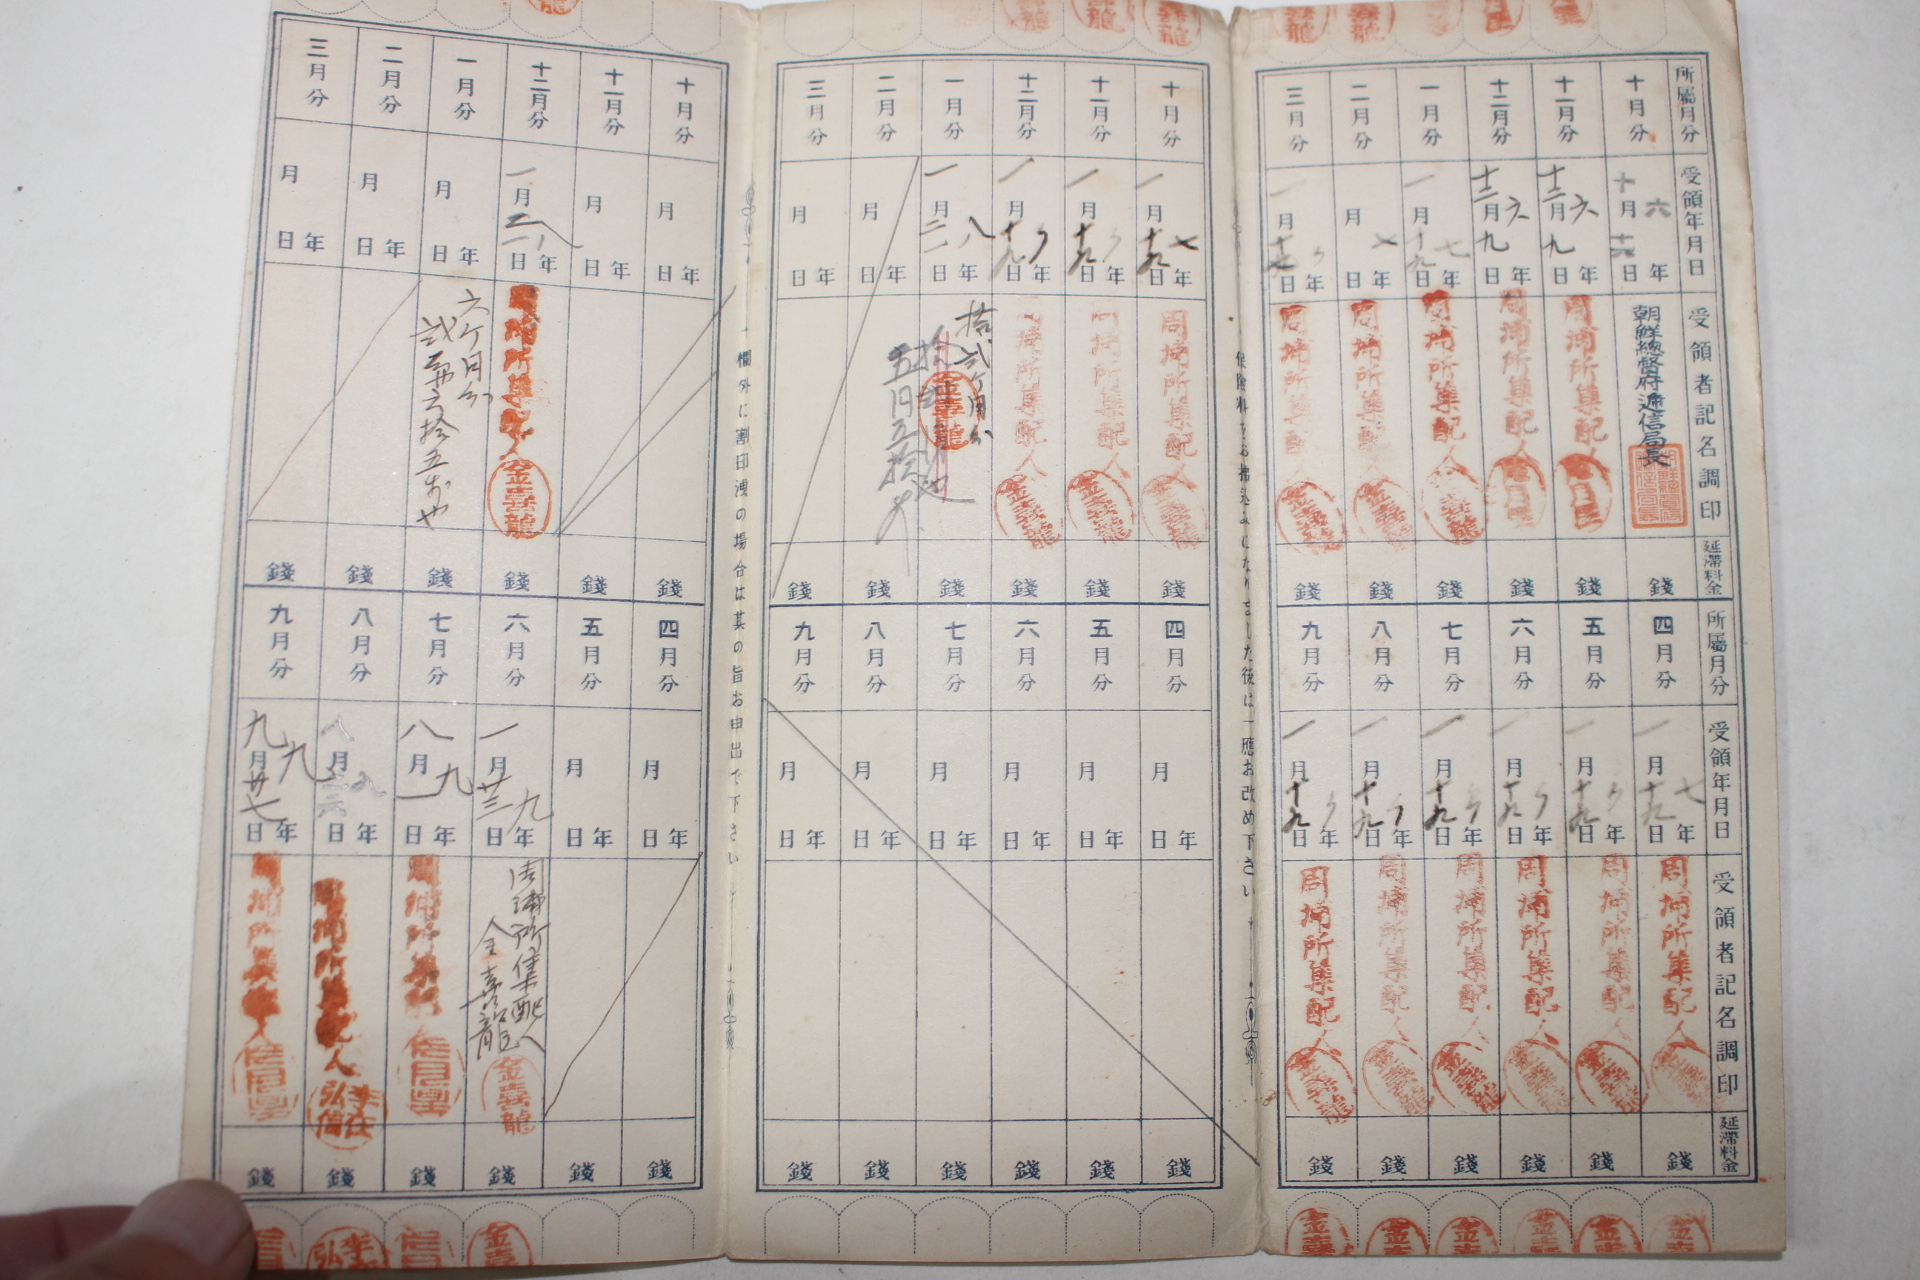 所屬月分
十月分
十一月分
十二月分
一月分
二月分
三月分
受領年月日
十月六年十六日
十二月六年九日
十二月六年九日
一月七年十九日
受領者記名調印
朝鮮總督府遞信局長
周浦所集配人
周浦所集配人
周浦所集配人
周浦所集配人
周浦所集配人
延滯料金
錢
錢
錢
錢
錢
錢
所屬月分
四月分
五月分
六月分
七月分
八月分
九月分
受領年月日
一月七年十九日
一月〃年十九日
一月〃年十九日
一月〃年十九日
一月〃年十九日
一月〃年十九日
受領者記名調印
周浦所集配人
周浦所集配人
周浦所集配人
周浦所集配人
周浦所集配人
周浦所集配人
延滯料金
錢
錢
錢
錢
錢
錢
保險料をお拂込みになりました後は一應お改め下さい
十月分
十一月分
十二月分
一月分
二月分
三月分
一月七年十九日
一月〃年十九日
一月〃年十九日
一月八年二一日
月年日
月年日
周浦所集配人 金喜龍
周浦所集配人 金喜龍
周浦所集配人 金喜龍
拾貳ケ月分
金喜龍
錢
錢
錢
錢
錢
錢
四月分
五月分
六月分
七月分
八月分
九月分
月年日
月年日
月年日
月年日
月年日
月年日
錢
錢
錢
錢
錢
錢
欄外に割印洩の場合は其の旨お申出で下さい
十月分
十一月分
十二月分
一月分
二月分
三月分
月年日
月年日
一月八年二一日
月年日
月年日
月年日
周浦所集配人 金喜龍
六ケ月分
錢
錢
錢
錢
錢
錢
四月分
五月分
六月分
七月分
八月分
九月分
月年日
月年日
一月九年廿三日
八月九年一日
八月九年二六日
九月九年廿七日
周浦所集配人
金喜龍
金喜龍
周浦所集配人
周浦所集配人
周浦所集配人
錢
錢
錢
錢
錢
錢